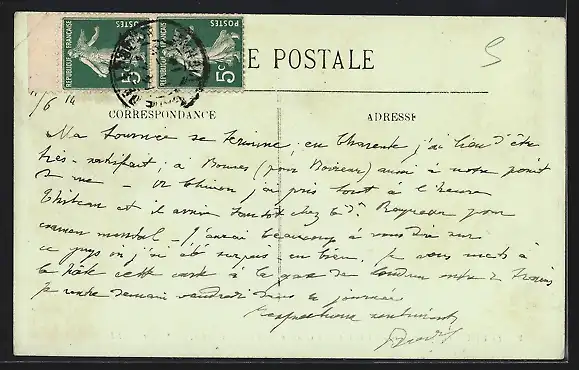 POSTES POSTES
REPUBLIQUE FRANÇAISE REPUBLIQUE FRANÇAISE
5c 5c
E POSTALE
5
/6 14
CORRESPONDANCE ADRESSE
Ma tournée se termine, en Charente j'ai lieu d'être
très-satisfait; à (pour aussi à notre point
de vue – j'ai pris tout à l'heure
et il arrive tantôt chez le Dr pour
examen mental – J'aurai beaucoup à vous dire sur
ce pays où j'ai été surpris en bien. Je vous mets à
la hâte cette carte à la gare de Loudun entre 2 trains
Je rentre demain vendredi dans la journée
Respectueux sentiments